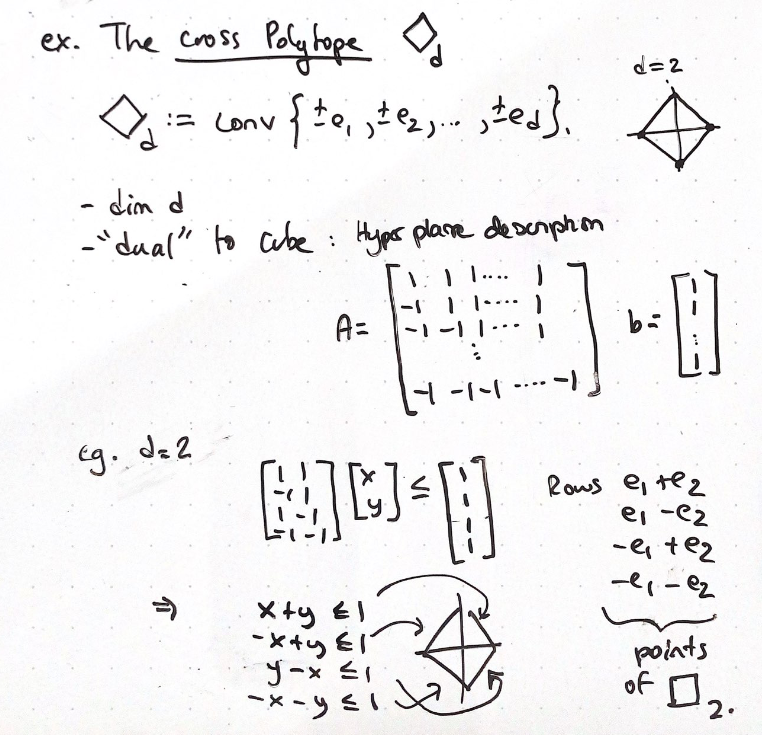 ex. The cross Polytope ◇d
d=2
◇d := conv { ±e₁, ±e₂, ..., ±ed }.
- dim d
- "dual" to cube : Hyperplane description
A= [ 1 1 1 .... 1
-1 1 1 .... 1
-1 -1 1 .... 1
⋮
-1 -1 -1 .... -1 ]
b= [ 1 1 ⋮ 1 ]
eg. d=2
[ 1 1
-1 1
1 -1
-1 -1 ] [ x y ] ≤ [ 1 1 1 1 ]
Rows e₁ + e₂
e₁ - e₂
-e₁ + e₂
-e₁ - e₂
⇒ x+y ≤ 1
-x+y ≤ 1
y-x ≤ 1
-x-y ≤ 1
points
of □₂.